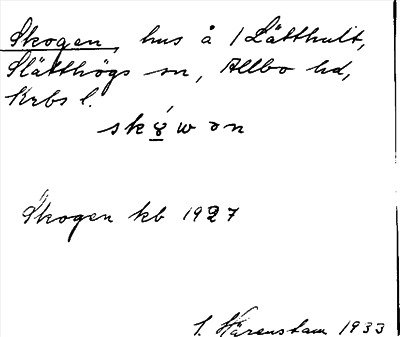 Skogen, hus å 1 Lätthult,
Slätthögs sn, Allbo hd,
Krbs l.
skówən
Skogen kb 1927
S. Härenstam 1933